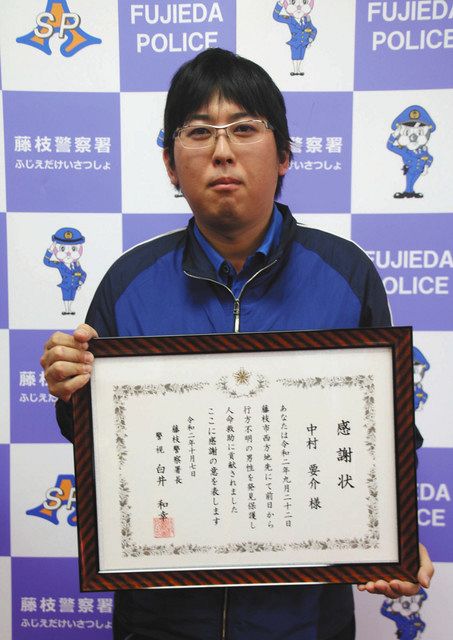 SP
FUJIEDA
POLICE
FUJIEDA
POLICE
藤枝警察署
ふじえだけいさつしょ
藤枝警察署
ふじえだけいさつしょ
FUJIEDA
POLICE
藤枝警察署
ふじえだけいさつしょ
藤枝警察署
ふじえだけいさつしょ
感謝状
中村 要介 様
あなたは令和二年九月二十二日
藤枝市西方地先にて前日から
行方不明の男性を発見保護し
人命救助に貢献されました
ここに感謝の意を表します
令和二年十月七日
藤枝警察署長
警視 白井 和幸